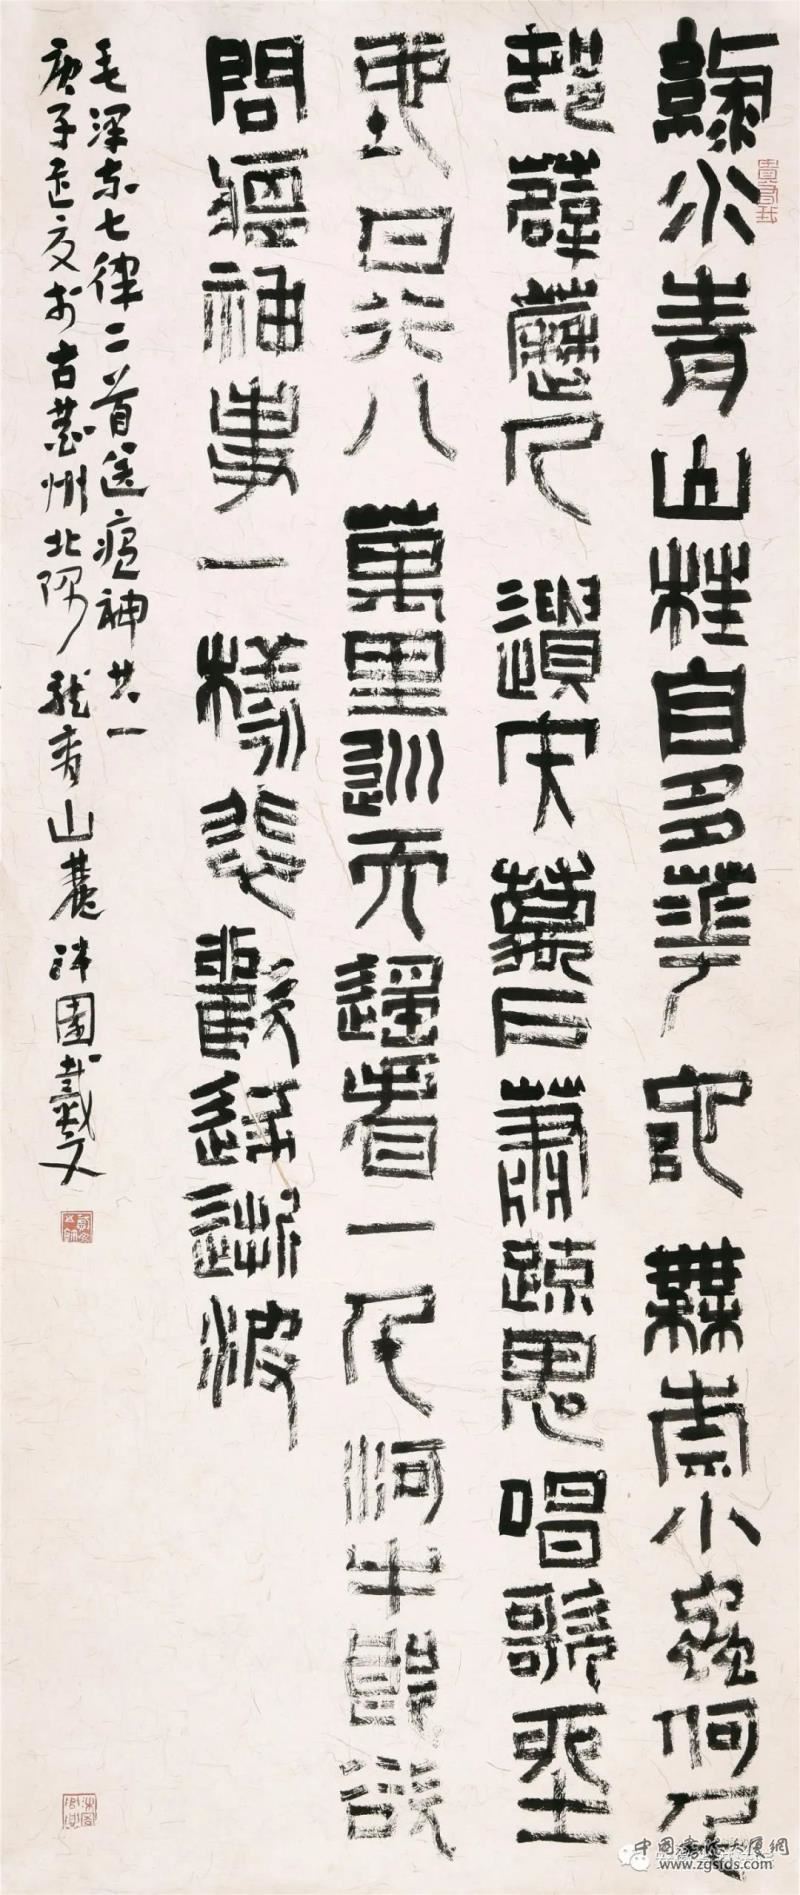 綠水青山枉自多華佗無奈小蟲何千
邨薜荔人遺矢萬戶蕭疏鬼唱歌坐
地日行八萬里巡天遙看一千河牛郎欲
問瘟神事一樣悲歡逐逝波
毛澤东七律二首送瘟神其一
庚子夏於古州北隅龍首山麓園戴文
中國書法大廈網
www.zgsfds.com